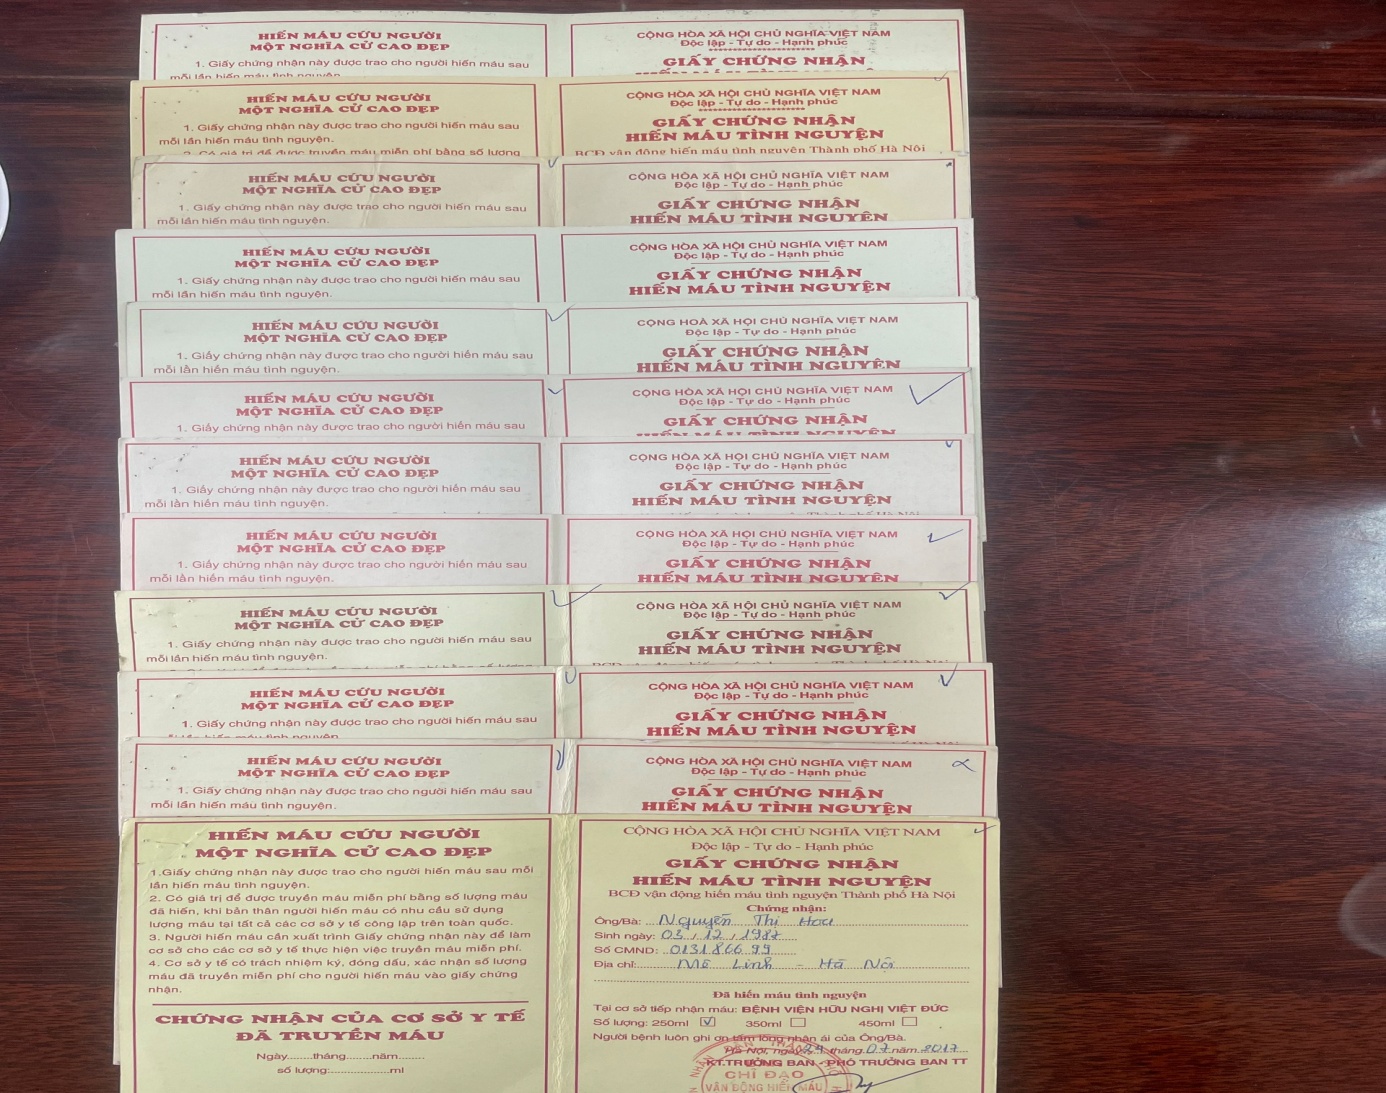 HIẾN MÁU CỨU NGƯỜI
MỘT NGHĨA CỬ CAO ĐẸP
1. Giấy chứng nhận này được trao cho người hiến máu sau
mỗi lần hiến máu tình nguyện.
CỘNG HÒA XÃ HỘI CHỦ NGHĨA VIỆT NAM
Độc lập - Tự do - Hạnh phúc
GIẤY CHỨNG NHẬN
HIẾN MÁU TÌNH NGUYỆN
HIẾN MÁU CỨU NGƯỜI
MỘT NGHĨA CỬ CAO ĐẸP
1. Giấy chứng nhận này được trao cho người hiến máu sau
mỗi lần hiến máu tình nguyện.
2. Có giá trị để được truyền máu miễn phí bằng số lượng
CỘNG HÒA XÃ HỘI CHỦ NGHĨA VIỆT NAM
Độc lập - Tự do - Hạnh phúc
GIẤY CHỨNG NHẬN
HIẾN MÁU TÌNH NGUYỆN
BCĐ vận động hiến máu tình nguyện Thành phố Hà Nội
HIẾN MÁU CỨU NGƯỜI
MỘT NGHĨA CỬ CAO ĐẸP
1. Giấy chứng nhận này được trao cho người hiến máu sau
mỗi lần hiến máu tình nguyện.
CỘNG HÒA XÃ HỘI CHỦ NGHĨA VIỆT NAM
Độc lập - Tự do - Hạnh phúc
GIẤY CHỨNG NHẬN
HIẾN MÁU TÌNH NGUYỆN
HIẾN MÁU CỨU NGƯỜI
MỘT NGHĨA CỬ CAO ĐẸP
1. Giấy chứng nhận này được trao cho người hiến máu sau
mỗi lần hiến máu tình nguyện.
CỘNG HÒA XÃ HỘI CHỦ NGHĨA VIỆT NAM
Độc lập - Tự do - Hạnh phúc
GIẤY CHỨNG NHẬN
HIẾN MÁU TÌNH NGUYỆN
HIẾN MÁU CỨU NGƯỜI
MỘT NGHĨA CỬ CAO ĐẸP
1. Giấy chứng nhận này được trao cho người hiến máu sau
mỗi lần hiến máu tình nguyện.
CỘNG HOÀ XÃ HỘI CHỦ NGHĨA VIỆT NAM
Độc lập - Tự do - Hạnh phúc
GIẤY CHỨNG NHẬN
HIẾN MÁU TÌNH NGUYỆN
HIẾN MÁU CỨU NGƯỜI
MỘT NGHĨA CỬ CAO ĐẸP
1. Giấy chứng nhận này được trao cho người hiến máu sau
CỘNG HÒA XÃ HỘI CHỦ NGHĨA VIỆT NAM
Độc lập - Tự do - Hạnh phúc
GIẤY CHỨNG NHẬN
HIẾN MÁU TÌNH NGUYỆN
HIẾN MÁU CỨU NGƯỜI
MỘT NGHĨA CỬ CAO ĐẸP
1. Giấy chứng nhận này được trao cho người hiến máu sau
mỗi lần hiến máu tình nguyện.
CỘNG HÒA XÃ HỘI CHỦ NGHĨA VIỆT NAM
Độc lập - Tự do - Hạnh phúc
GIẤY CHỨNG NHẬN
HIẾN MÁU TÌNH NGUYỆN
HIẾN MÁU CỨU NGƯỜI
MỘT NGHĨA CỬ CAO ĐẸP
1. Giấy chứng nhận này được trao cho người hiến máu sau
mỗi lần hiến máu tình nguyện.
CỘNG HÒA XÃ HỘI CHỦ NGHĨA VIỆT NAM
Độc lập - Tự do - Hạnh phúc
GIẤY CHỨNG NHẬN
HIẾN MÁU TÌNH NGUYỆN
HIẾN MÁU CỨU NGƯỜI
MỘT NGHĨA CỬ CAO ĐẸP
1. Giấy chứng nhận này được trao cho người hiến máu sau
mỗi lần hiến máu tình nguyện.
CỘNG HÒA XÃ HỘI CHỦ NGHĨA VIỆT NAM
Độc lập - Tự do - Hạnh phúc
GIẤY CHỨNG NHẬN
HIẾN MÁU TÌNH NGUYỆN
HIẾN MÁU CỨU NGƯỜI
MỘT NGHĨA CỬ CAO ĐẸP
1. Giấy chứng nhận này được trao cho người hiến máu sau
mỗi lần hiến máu tình nguyện.
CỘNG HÒA XÃ HỘI CHỦ NGHĨA VIỆT NAM
Độc lập - Tự do - Hạnh phúc
GIẤY CHỨNG NHẬN
HIẾN MÁU TÌNH NGUYỆN
HIẾN MÁU CỨU NGƯỜI
MỘT NGHĨA CỬ CAO ĐẸP
1. Giấy chứng nhận này được trao cho người hiến máu sau
mỗi lần hiến máu tình nguyện.
CỘNG HÒA XÃ HỘI CHỦ NGHĨA VIỆT NAM
Độc lập - Tự do - Hạnh phúc
GIẤY CHỨNG NHẬN
HIẾN MÁU TÌNH NGUYỆN
HIẾN MÁU CỨU NGƯỜI
MỘT NGHĨA CỬ CAO ĐẸP
1.Giấy chứng nhận này được trao cho người hiến máu sau mỗi
lần hiến máu tình nguyện.
2. Có giá trị để được truyền máu miễn phí bằng số lượng máu
đã hiến, khi bản thân người hiến máu có nhu cầu sử dụng
lượng máu tại tất cả các cơ sở y tế công lập trên toàn quốc.
3. Người hiến máu cần xuất trình Giấy chứng nhận này để làm
cơ sở cho các cơ sở y tế thực hiện việc truyền máu miễn phí.
4. Cơ sở y tế có trách nhiệm ký, đóng dấu, xác nhận số lượng
máu đã truyền miễn phí cho người hiến máu vào giấy chứng
nhận.
CHỨNG NHẬN CỦA CƠ SỞ Y TẾ
ĐÃ TRUYỀN MÁU
Ngày........tháng........năm........
số lượng:..................ml
CỘNG HÒA XÃ HỘI CHỦ NGHĨA VIỆT NAM
Độc lập - Tự do - Hạnh phúc
GIẤY CHỨNG NHẬN
HIẾN MÁU TÌNH NGUYỆN
BCĐ vận động hiến máu tình nguyện Thành phố Hà Nội
Chứng nhận:
Ông/Bà: Nguyễn Thị Hoa
Sinh ngày: 03 / 12 / 1987
Số CMND: 013186699
Địa chỉ: Mê Linh - Hà Nội
Đã hiến máu tình nguyện
Tại cơ sở tiếp nhận máu: BỆNH VIỆN HỮU NGHỊ VIỆT ĐỨC
Số lượng: 250ml ☑ 350ml ☐ 450ml ☐
Người bệnh luôn ghi ơn tấm lòng nhân ái của Ông/Bà.
Hà Nội, ngày 24 tháng 07 năm 2017
KT.TRƯỞNG BAN - PHÓ TRƯỞNG BAN TT
CHỈ ĐẠO
VẬN ĐỘNG HIẾN MÁU